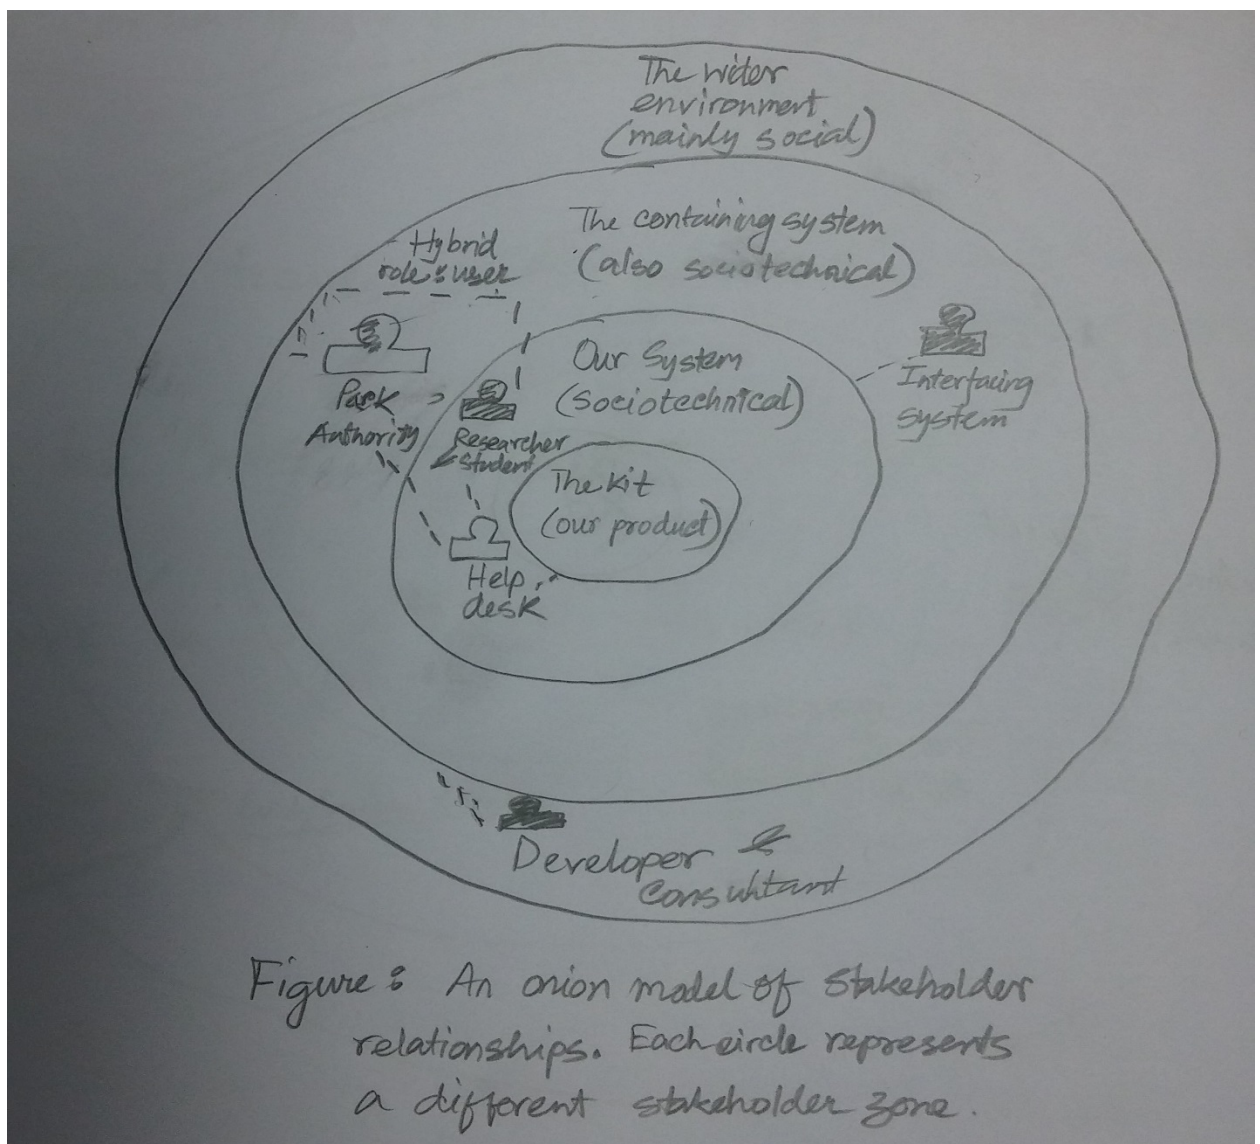 The wider
environment
(mainly social)
The containing system
(also sociotechnical)
Hybrid
role : user
Our System
(sociotechnical)
Interfacing
system
Park
Authority
Researcher
& Student
The kit
(our product)
Help
desk
Developer &
Consultant
Figure : An onion model of stakeholder
relationships. Each circle represents
a different stakeholder zone.